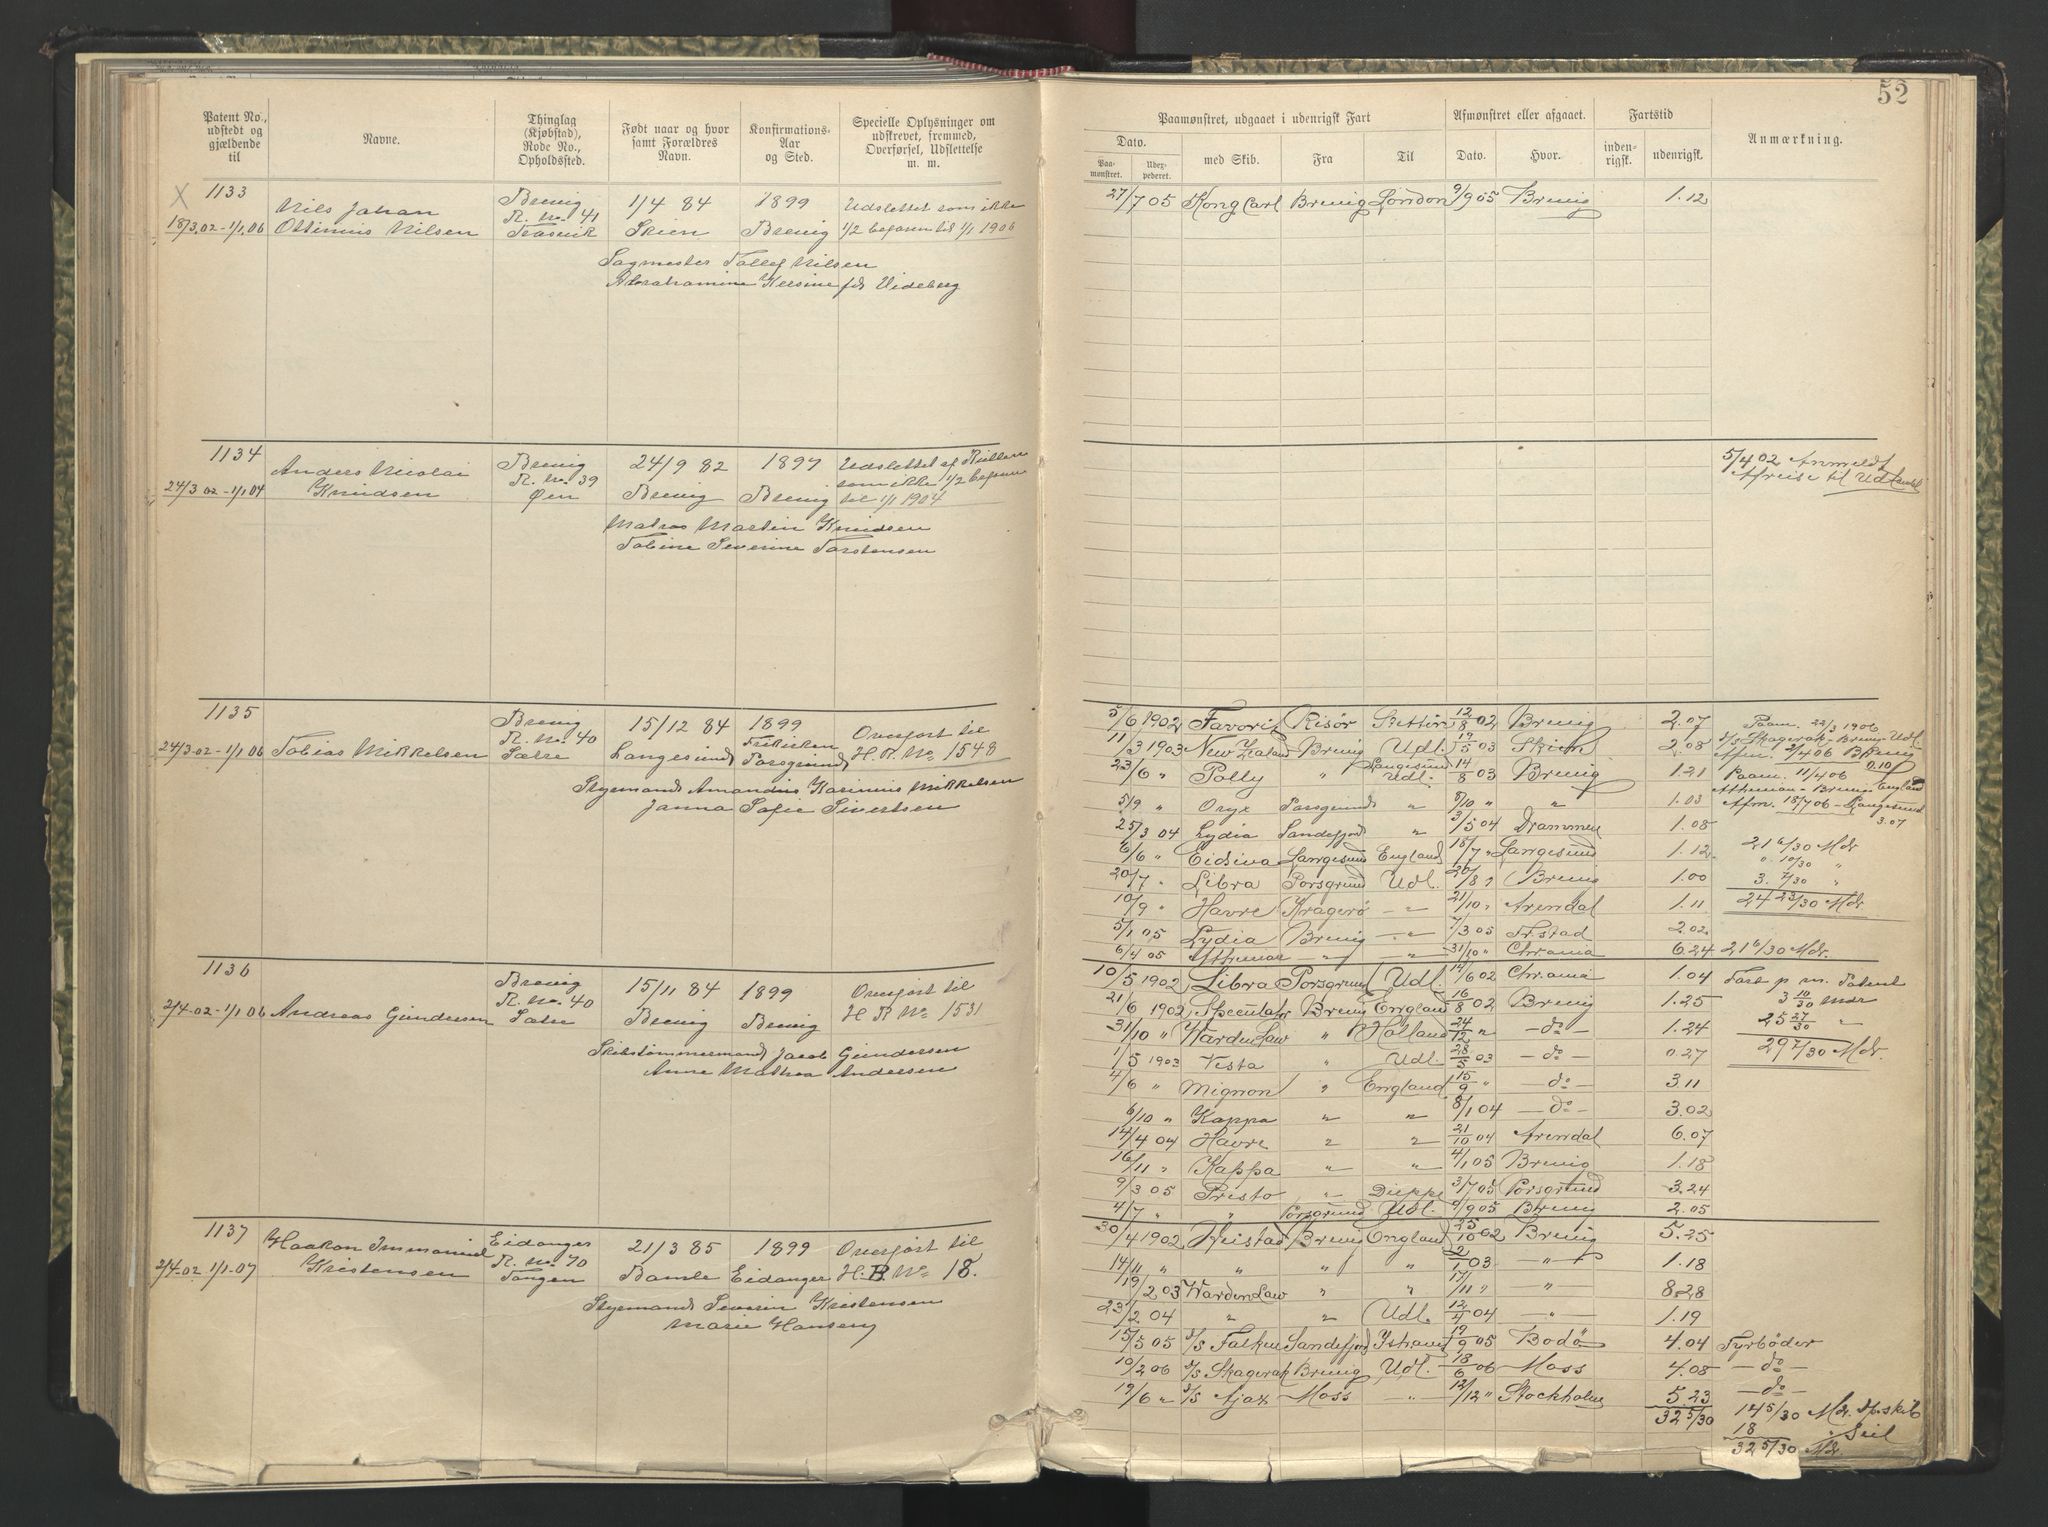 52
Patent No., udstedt og gjældende til
Navne.
Thinglag (Kjøbstad), Rode No., Opholdssted.
Født naar og hvor samt Forældres Navn.
Konfirmations-Aar og Sted.
Specielle Oplysninger om udskrevet, fremmed, Overførsel, Udslettelse m. m.
Paamønstret, udgaaet i udenrigsk Fart
Afmønstret eller afgaaet.
Fartstid
Anmærkning.
Dato.
Paa-mønstret.
Udex-pederet.
med Skib.
Fra
Til
Dato.
Hvor.
inden-rigsk.
udenrigsk.
X 1133
18/3.02-1/1.06
Nils Johan
Ottinius Nilsen
Brevig
R. No. 41
Trosvik
1/4 84
Skien
1899
Brevig
Udslettet som ikke
1/2 befaren til 1/1 1906
Sagmester Tollef Nilsen
Abrahamine Kersine fdt Videberg
27/7 05 Kong Carl Brevig London 9/9 05 Brevig 1.12
1134
24/3 02-1/1 04
Anders Nicolai
Knudsen
Brevig
R. No. 39
Øen
24/9 82
Brevig
1897
Brevig
Udslettet af Rullen
som ikke 1/2 befaren
til 1/1 1904
Matros Martin Knudsen
Tobine Severine Torstensen
5/4 02 Anmeldt
Afreise til Udlandet
1135
24/3-02-1/1 06
Tobias Mikkelsen
Brevig
R. No. 40
Sætre
15/12 84
Langesund
1899
Frikirken
Porsgrund
Overført til
H. R. No. 1548
Styrmand Amandus Karinius Mikkelsen
Janna Sofie Sivertsen
5/6 1902 Favorit Risör Stettin 12/8 02 Brevig 2.07
11/3 1903 New Zealand Brevig Udl. 19/5 03 Skien 2.08
23/6 " Polly " Langesund Udl. 14/8 03 Brevig 1.21
5/9 " Oryx Porsgrund " 8/10 " " 1.03
25/3 04 Lydia Sandefjord " 3/5 04 Drammen 1.08
6/6 " Eidsiva Langesund England 18/7 " Langesund 1.12
20/7 " Libra Porsgrund Udl. 20/8 " Brevig 1.00
10/9 " Havre Kragerö - " - 21/10 " Arendal 1.11
5/1 05 Lydia Brevig - " - 7/3 05 Fr.stad 2.02
6/4 05 Athenian - " - - " - 31/10 " Chr.ania 6.24
Paam. 22/3 1906
S/S Skagerak - Brevig - Udl.
Afm. 2/4 06 Brevig
0.10
Paam. 11/4 06
Athenian - Brevig England
Afm. 18/7 06 - Langesund
3.07
21 6/30 Mdr
0. 10/30 "
3. 7/30 "
24 23/30 Mdr
21 6/30 Mdr.
1136
2/4-02-1/1 06
Andreas Gundersen
Brevig
R. No. 40
Sætre
15/11 84
Brevig
1899
Brevig
Overført til
H R No. 1531
Skibstömmermand Jacob Gundersen
Anne Mathea Andersen
10/5 1902 Libra Porsgrund Udl. 14/6 02 Chr.ania 1.04
21/6 1902 Speculator Brevig England 16/8 02 Brevig 1.25
31/10 " Warden Law " Holland 24/12 " - do - 1.24
1/5 1903 Vesta " Udl. 28/5 03 - do - 0.27
4/6 " Mignon " England 15/9 " - do - 3.11
6/10 " Kappa " " 8/1 04 - do - 3.02
14/4 04 Havre " " 21/10 04 Arendal 6.07
16/11 " Kappa " " 4/1 05 Brevig 1.18
9/3 05 Presto " Dieppe 3/7 05 Porsgrund 3.24
4/7 " " Porsgrund Udl. 9/9 05 Brevig 2.05
Fart p m. Patent
3 10/30 Mdr
25 27/30 "
29 7/30 Mdr.
1137
2/4-02 1/1-07
Haakon Immanuel
Kristensen
Eidanger
R. No. 70
Tangen
21/3 85
Bamle
1899
Eidanger
Overført til
H. B. No. 18.
Styrmand Severin Kristensen
Marie Hansen
30/4 1902 Heistad Brevig England 25/10 02 Brevig 5.25
14/11 " " " " 2/1 03 - " - 1.18
19/2 03 Warden Law " " 17/11 " " 8.28
23/2 04 " " Udl. 12/4 04 " 1.19
15/5 05 S/S Falken Sandefjord Ishavet 19/9 05 Bodö 4.04 Fyrböder
10/2 06 S/S Skagerak Brevig Udl. 18/6 06 Moss 4.08 - do -
19/6 " S/S Ajax Moss - " - 12/12 " Stockholm 5.23 - do -
32 5/30
14 5/30 Md. dp.skib
18 " Seil
32 5/30 Md.